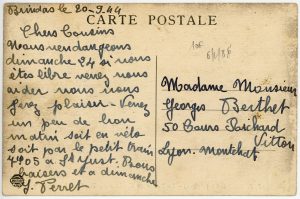 Brindas le 20-9.44
CARTE POSTALE
Chers Cousins
Nous vendangeons
dimanche 24 si nous
êtes libre venez nous
aider nous nous
ferez plaisir - Venez
un peu de bon
matin soit en vélo
soit par le petit train
4 05 à St Just. Bons
baisers et a dimanche
J. Perret
Madame Monsieur
Georges Berthet
50 Cours Richard
Vitton
Lyon. Montchat